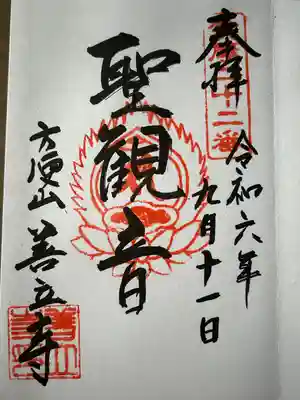 奉拝
令和六年
九月十一日
聖観音
方便山 善立寺